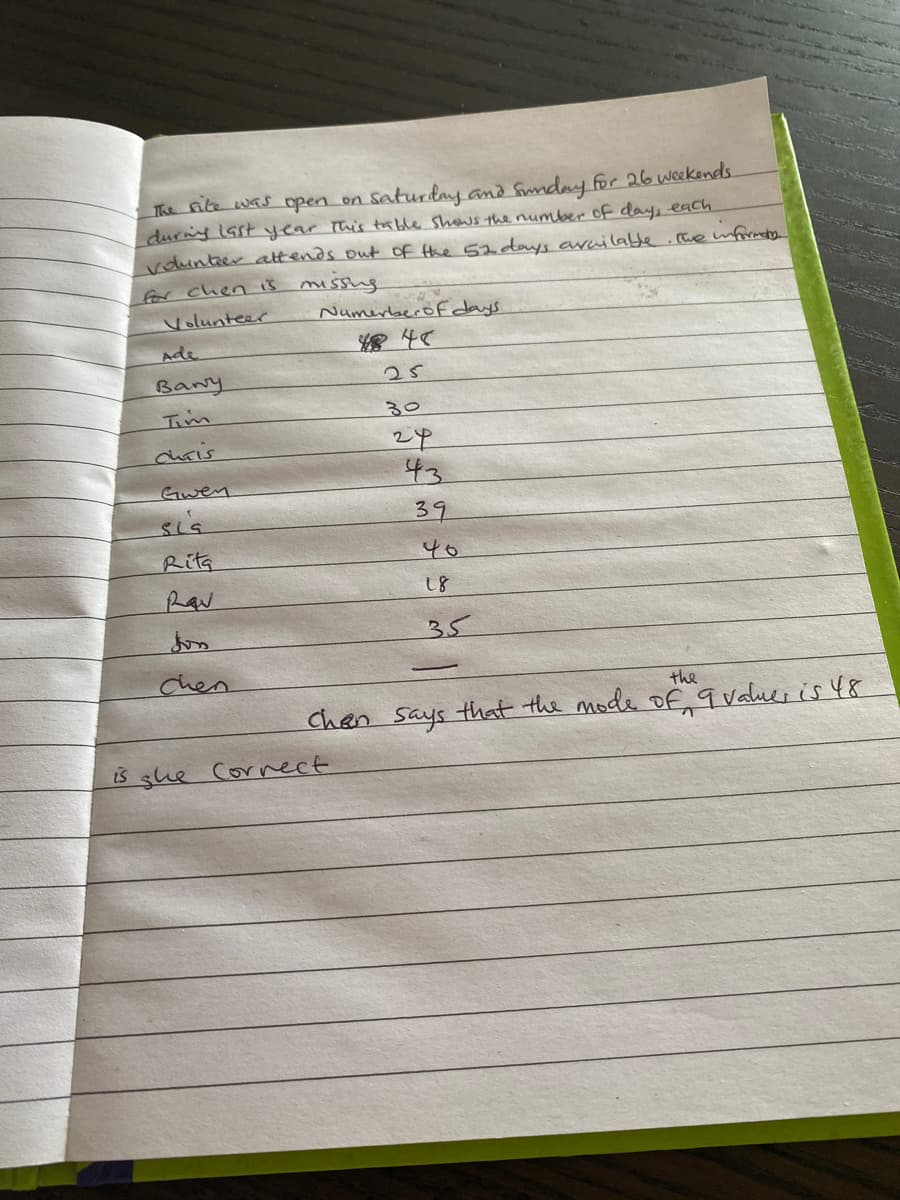 The site was open on Saturday and Sunday for 26 weekends
during last year This table shows the number of days each
volunteer attends out of the 52 days available. The
for chen is missing
Volunteer Numerber of days
Ade 48
Barry 25
Tim 30
chris 24
Gwen 43
sia 39
Rita 40
Rav 18
Jon 35
Chen —
Chen says that the mode of the 9 values is 48
is she Correct